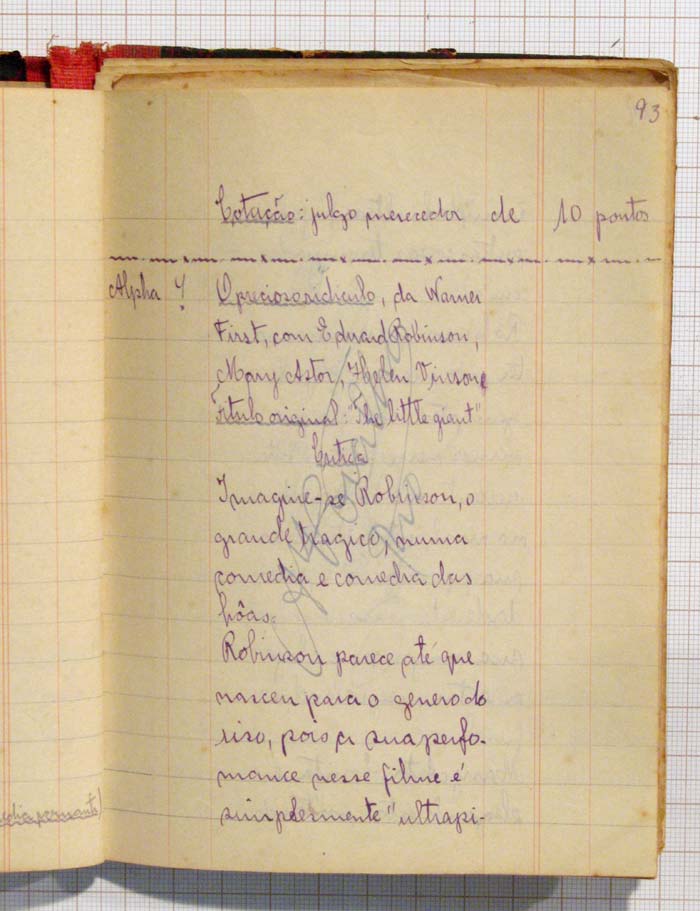 93
Cotação: julgo merecedor de 10 pontos
Alpha O precioso ridiculo, da Warner
First, com Edward Robinson,
Mary Astor, Helen Vinson
Titulo original: "The little giant"
Critica
Imagine-se Robinson, o
grande tragico, numa
comedia e comedia das
bôas.
Robinson parece até que
nasceu para o genero do
riso, pois a sua perfo-
mance nesse filme é
simplesmente "ultrapi-